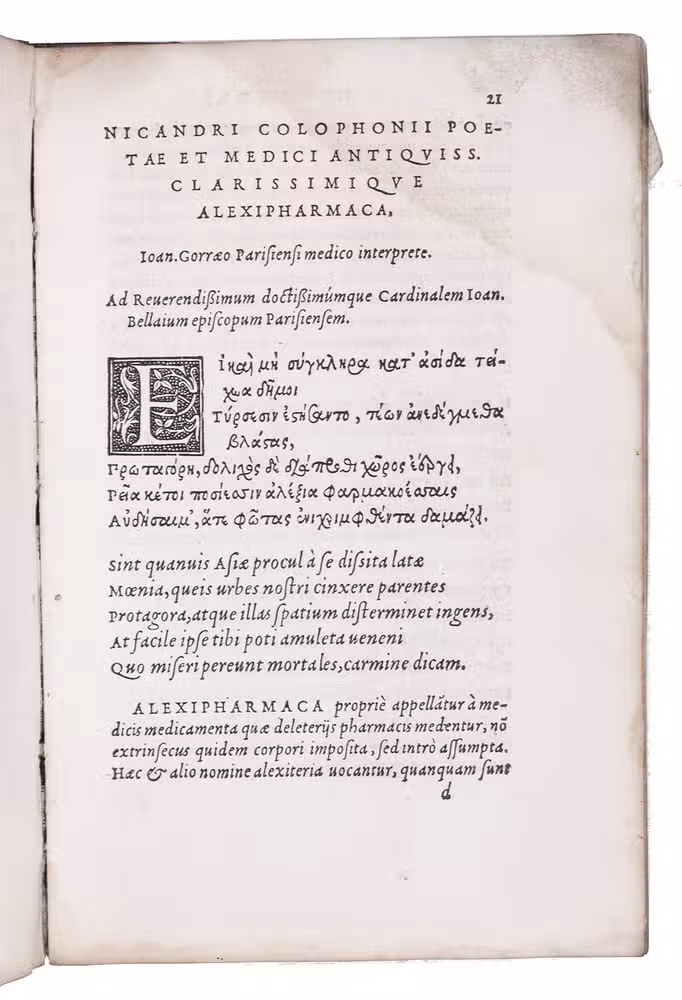 21
NICANDRI COLOPHONII POE-
TAE ET MEDICI ANTIQVISS.
CLARISSIMIQVE
ALEXIPHARMACA,
Ioan. Gorræo Parisiensi medico interprete.
Ad Reuerendißimum doctißimúmque Cardinalem Ioan.
Bellaium episcopum Parisiensem.
Εἰ καὶ μὴ σύγκληρα κατ' ἀσίδα τεί-
χεα δῆμοι
Τύρσεσιν ἐστήσαντο, τέων ἀνεδέγμεθα
βλάστας,
Πρωταγόρη, δολιχὸς δὲ διάπροθι χῶρος ἐέργει,
Ρεῖα κέ τοι ποσίεσσιν ἀλέξια φαρμακοέσσαις
Αὐδήσαιμ', ἅτε φῶτας ἐνιχριμφθέντα δαμάζει.
Sint quanuis Asiæ procul à se dissita latæ
Mœnia, queis urbes nostri cinxere parentes
Protagora, atque illas spatium disterminet ingens,
At facile ipse tibi poti amuleta ueneni
Quo miseri pereunt mortales, carmine dicam.
ALEXIPHARMACA propriè appellãtur à me-
dicis medicamenta quæ deleterijs pharmacis medentur, nõ
extrinsecus quidem corpori imposita, sed intrò assumpta.
Hæc & alio nomine alexiteria uocantur, quanquam sunt
d